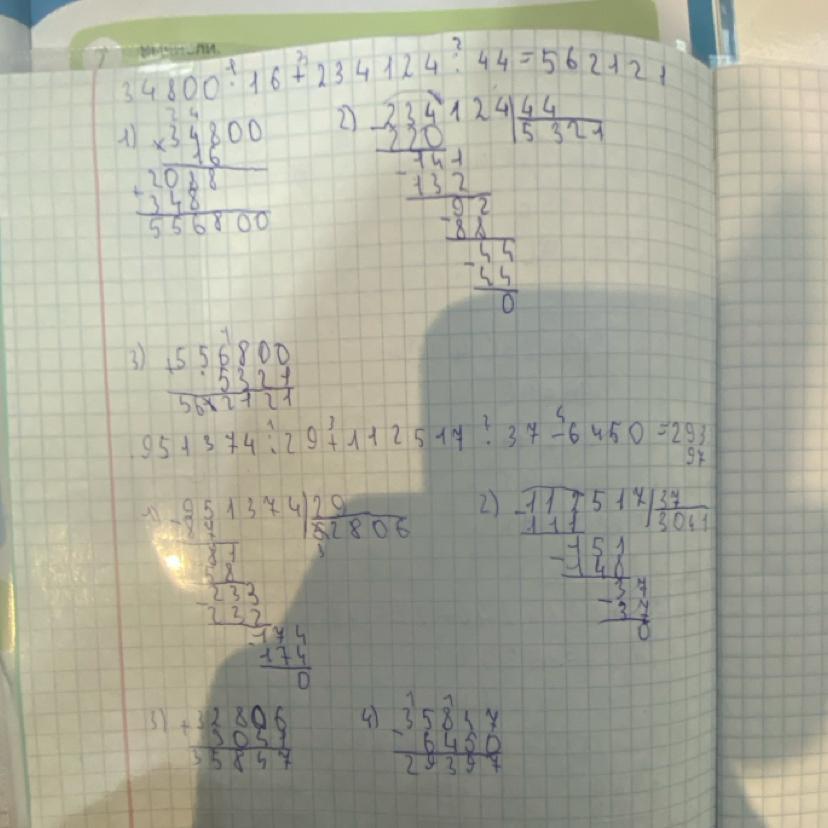 вычисли.
34800 · 16 + 234124 : 44 = 562121
1) × 34800
16
+ 2088
348
556800
2) - 234124 | 44
220 | 5321
- 141
132
- 92
88
- 44
44
0
3) + 556800
5321
562121
951374 : 29 + 112517 : 37 - 6450 = 293
97
1) - 951374 | 29
87 | 32806
81
58
- 233
232
- 174
174
0
2) - 112517 | 37
111 | 3041
- 151
148
- 37
37
0
3) + 32806
3041
35847
4) - 35847
6450
29397